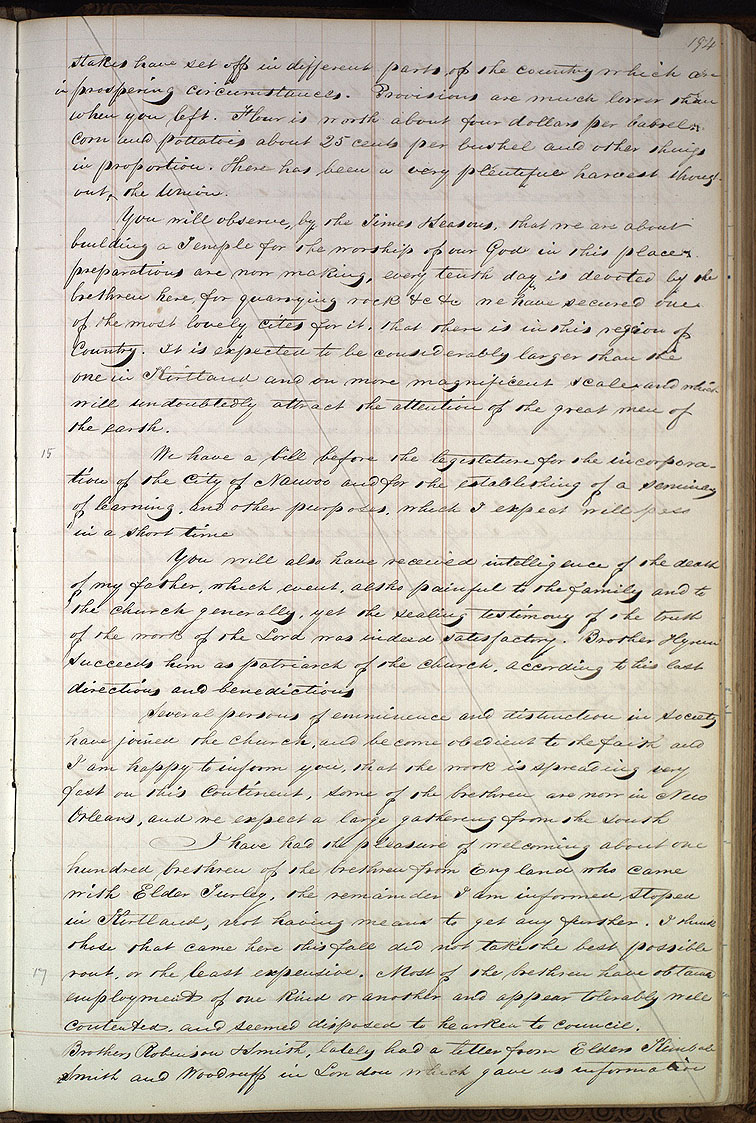 194
stakes have set off in different parts of the country which are
in prospering circumstances. Provisions are much lower than
when you left. Flour is worth about four dollars per barrel,
corn and pottatois about 25 cents per bushel and other things
in proportion. There has been a very plentiful harvest through-
out, the Union.
You will observe, by the Times & Seasons, that we are about
building a Temple for the worship of our God in this place &
preparations are now making, every tenth day is devoted by the
brethren here, for quarrying rock &c &c we have secured one
of the most lovely cites for it, that there is in this region of
Country. It is expected to be considerably larger than the
one in Kirtland and on more magnificent scale and which
will undoubtedly attract the attention of the great men of
the earth.
15 We have a bill before the legislature for the incorpora-
tion of the City of Nauvoo and for the establishing of a seminary
of learning, and other purposes, which I expect will pass
in a short time
You will also have received intelligence of the death
of my father, which event, altho painful to the family and to
the church generally, yet the sealing testimony of the truth
of the work of the Lord was indeed satisfactory. Brother Hyrum
succeeds him as patriarch of the church, according to his last
directions and benedictions
Several persons of emminence and distinction in society
have joined the church, and become obedient to the faith and
I am happy to inform you, that the work is spreading very
fast on this continent, some of the brethren are now in New
Orleans, and we expect a large gathering from the south
I have had the pleasure of welcoming about one
hundred brethren of the brethren from England who came
with Elder Turley, the remainder I am informed stoped
in Kirtland, not having means to get any further. I think
those that came here this fall did not take the best possible
rout, or the least expensive. Most of the brethren have obtaind
17 employment of one kind or another and appear tolerably well
contented, and seemed disposed to hearken to council.
Brothers Robinson & Smith, lately had a letter from Elders Kimball
Smith and Woodruff in London which gave us information